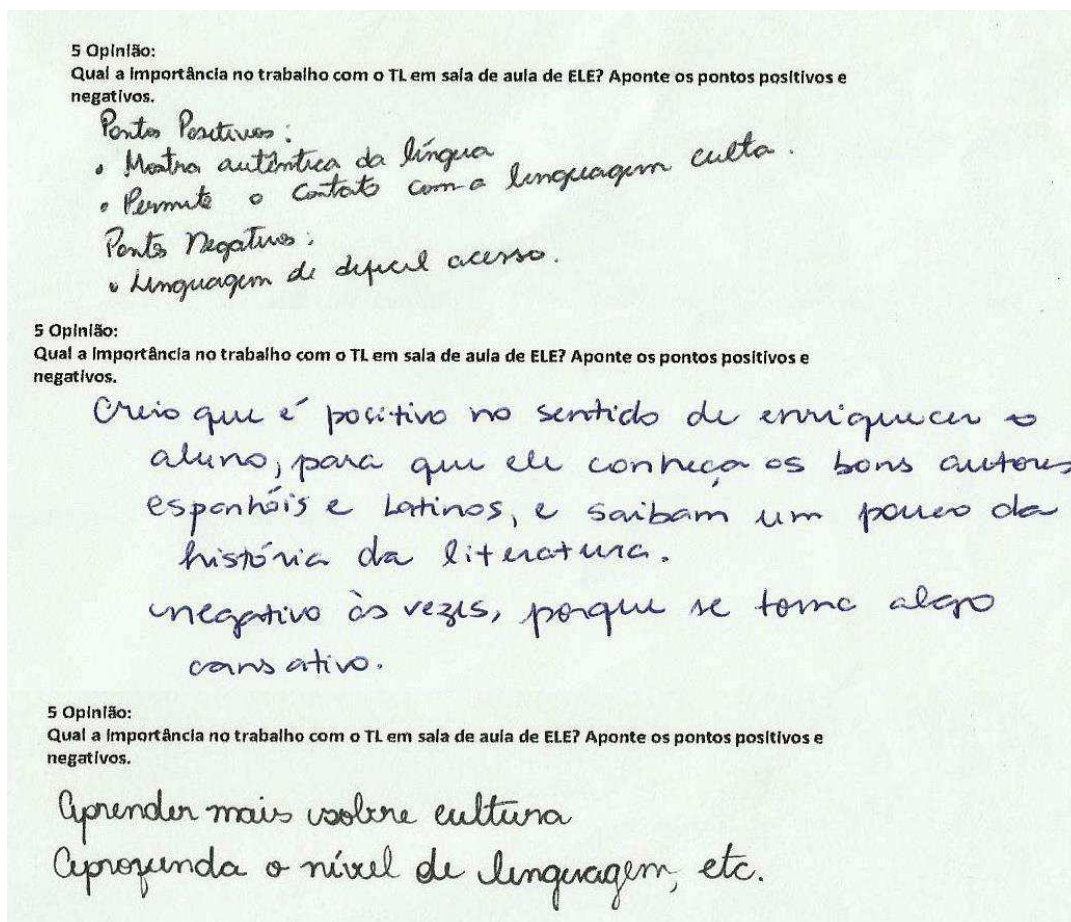 5 Opinião:
Qual a importância no trabalho com o TL em sala de aula de ELE? Aponte os pontos positivos e
negativos.
Pontos Positivos:
• Mostra autêntica da língua
• Permite o contato com a linguagem culta.
Pontos Negativos:
• Linguagem de difícil acesso.
5 Opinião:
Qual a importância no trabalho com o TL em sala de aula de ELE? Aponte os pontos positivos e
negativos.
Creio que é positivo no sentido de enriquecer o
aluno, para que ele conheça os bons autores
espanhóis e Latinos, e saibam um pouco da
história da literatura.
negativo às vezes, porque se torna algo
cansativo.
5 Opinião:
Qual a importância no trabalho com o TL em sala de aula de ELE? Aponte os pontos positivos e
negativos.
Aprender mais sobre cultura
Aprofunda o nível de linguagem, etc.